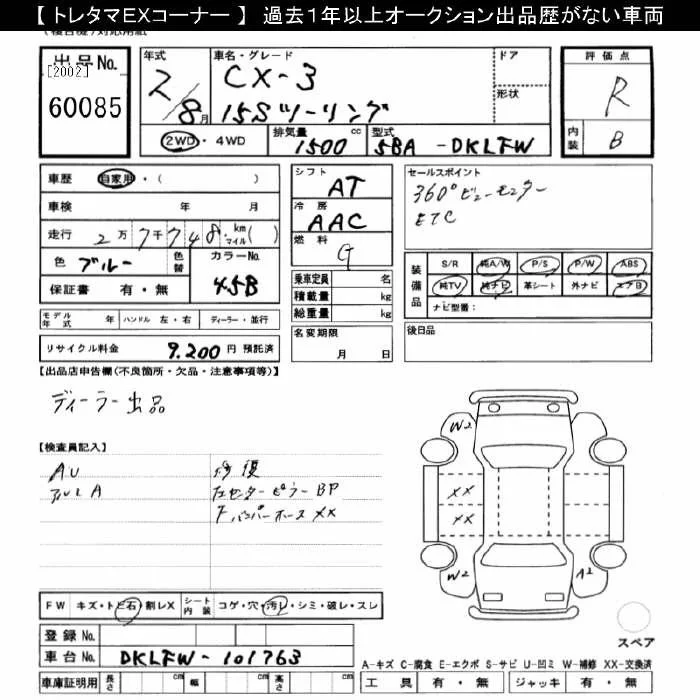 【トレタマEXコーナー】 過去1年以上オークション出品歴がない車両
出品No. [2002] 60085
年式 2/8月
車名・グレード CX-3 15Sツーリング
ドア 形状
評価点 R
内装 B
2WD・4WD 排気量 1500 cc 型式 5BA-DKLFW
車歴 自家用・( )
車検 年 月
走行 2万7千748 km マイル( )
色 ブルー 色替 カラーNo. 45B
保証書 有・無
シフト AT
冷房 AAC
燃料 G
乗車定員 名
積載量 kg
総重量 kg
名変期限 月 日
セールスポイント
360°ビューモニター
ETC
装備品 S/R 純A/W P/S P/W ABS
純TV 純ナビ 革シート 外ナビ エアB
ナビ型番:
後日品
モデル年式 年 ハンドル 左・右 ディーラー・並行
リサイクル料金 9.200 円 預託済
【出品店申告欄(不良箇所・欠品・注意事項等)】
ディーラー出品
【検査員記入】
AU 修復
アルミA 左センターピラーBP
Fバンパーホース XX
W2
XX
XX
W2 A2
FW キズ・トビ石・割レX シート内装 コゲ・穴・汚レ・シミ・破レ・スレ
スペア
登録No.
車台No. DKLFW-101763
A-キズ C-腐食 E-エクボ S-サビ U-凹ミ W-補修 XX-交換済
車庫証明用 長さ cm 幅 cm 高さ cm
工具 有・無 ジャッキ 有・無